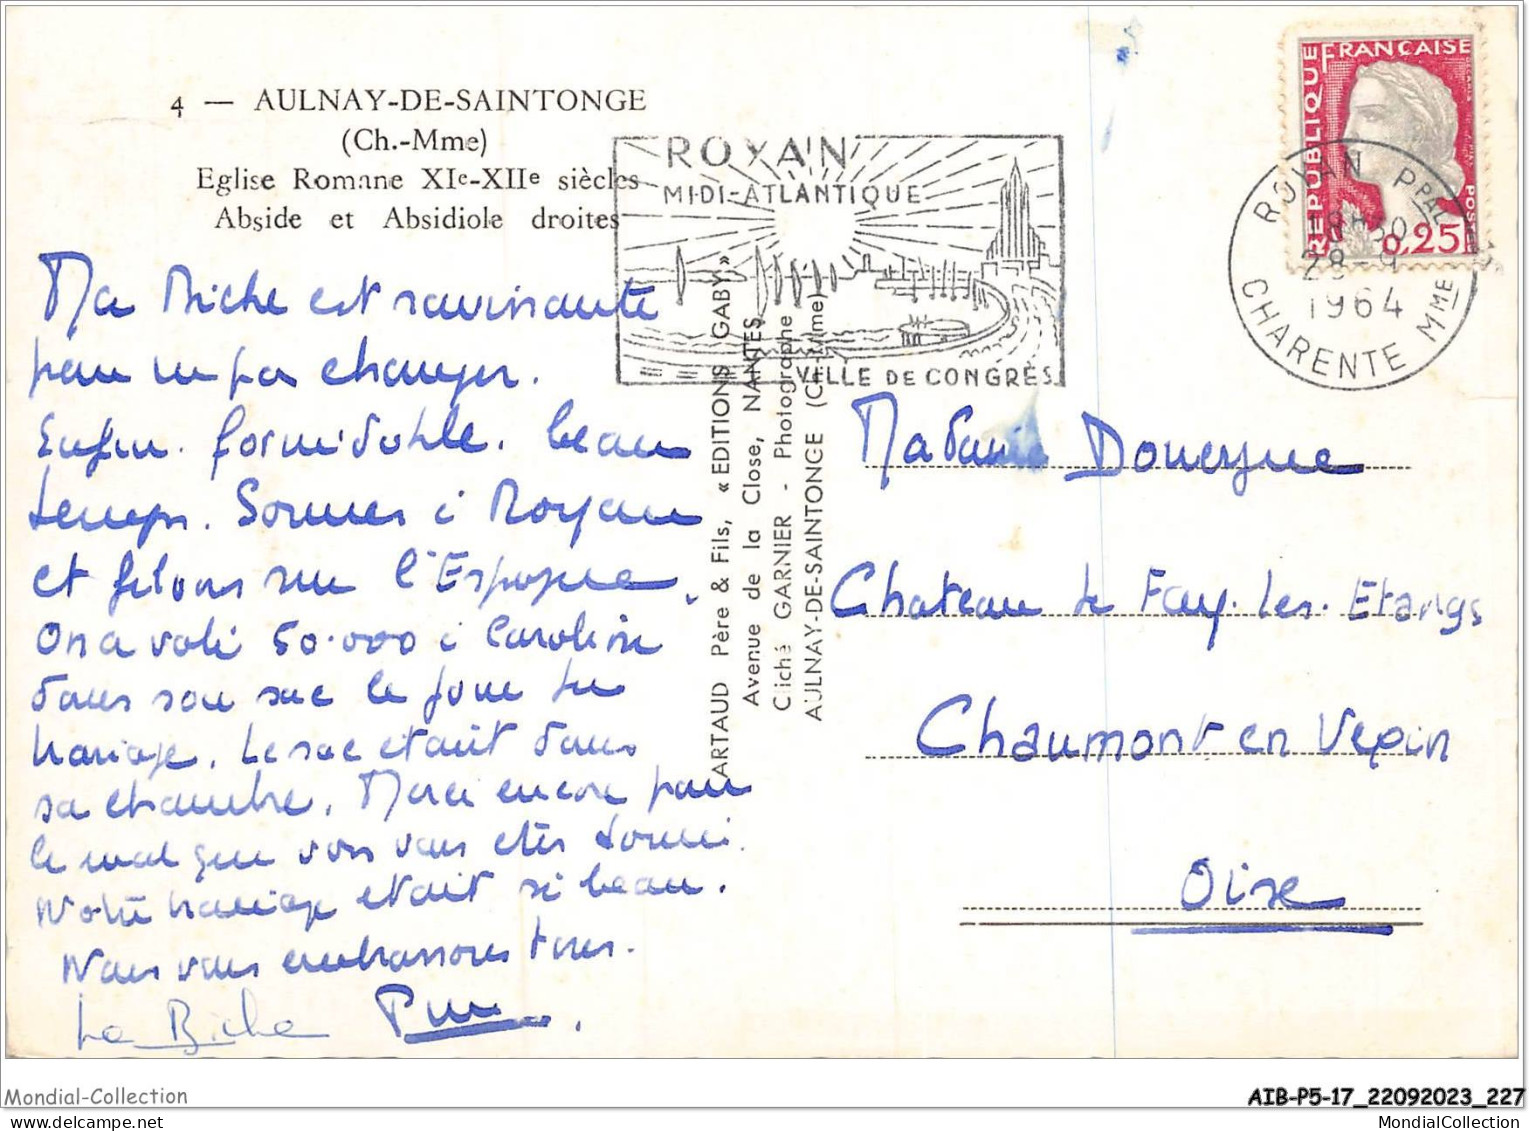 4 — AULNAY-DE-SAINTONGE
(Ch.-Mme)
Eglise Romane XIe-XIIe siècles
Abside et Absidiole droites
Ma Biche est ravissante
pour ne pas changer.
Enfin. formidable. beau
temps. Sommes à Royan
et filons sur l'Espagne.
On a volé 50.000 à Caroline
dans son sac le jour du
mariage. Le sac était dans
sa chambre. Merci encore pour
le mal que vous vous êtes donné.
Notre mariage était si beau.
Nous vous embrassons tous.
La Biche
ROYAN
MIDI-ATLANTIQUE
VILLE DE CONGRÈS
ARTAUD Père & Fils, « EDITIONS GABY »
Avenue de la Close, NANTES
Cliché GARNIER - Photographe
AULNAY-DE-SAINTONGE (Ch-Mme)
REPUBLIQUE FRANÇAISE
POSTES
0,25
ROYAN PPAL
18H30
28-9
1964
CHARENTE MME
Madame Douergue
Chateau de Fay. les. Etangs
Chaumont en Vexin
Oise
Mondial-Collection
AIB-P5-17_22092023_227
MondialCollection